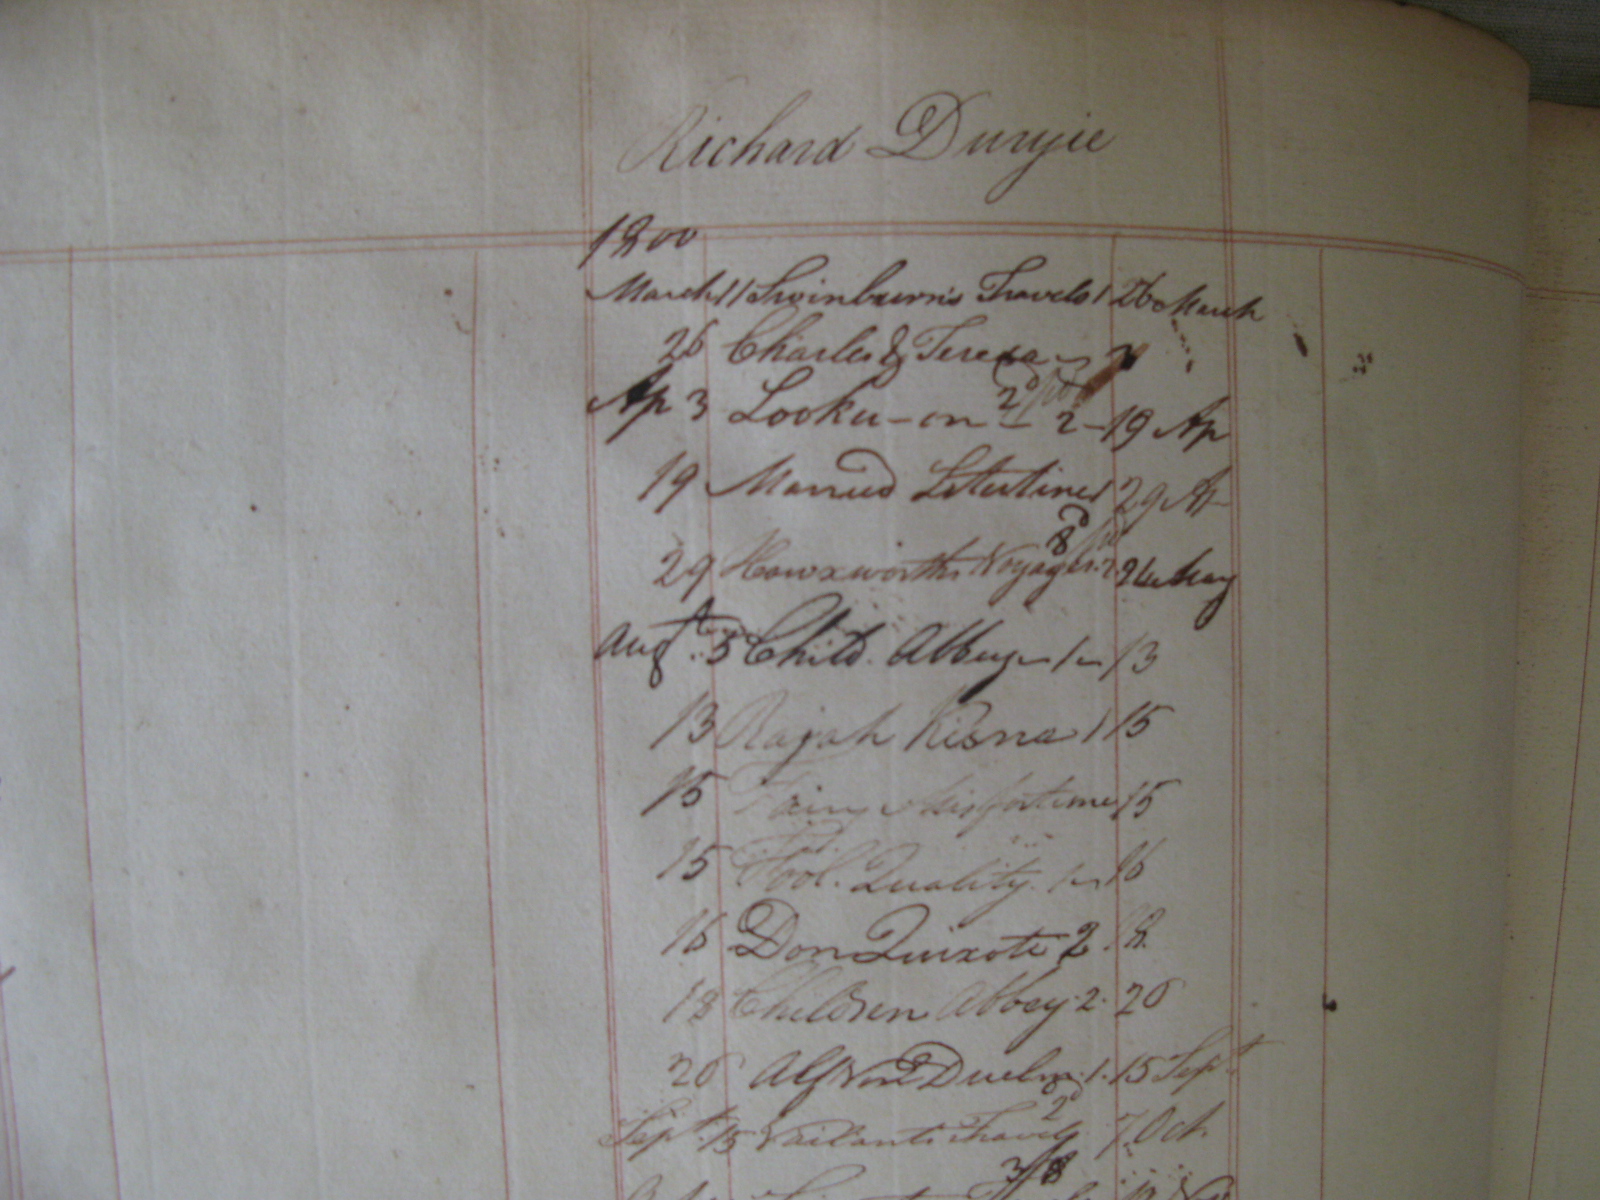 Richard Duryie
1800
March 11 Swinburn's Travels 1 26 March
26 Charles & Teresa
Ap 3 Looker-on - 2 - 19 Ap
19 Married Libertine 1 29 Ap
8d
29 Hawxworth's Voyages. 2 24 May
Augt. 5 Child. Abbey - 1 - 13
13 Rajah Kisna 1 15
15 Fairy Misfortune 15
15 Fool. Quality. 1 - 16
16 Don Quixote 2 18.
18 Children Abbey. 2. 20
20 Alf Von Duelm. 1. 15 Sept
2d
Sept. 15 Vailants Travels 7. Oct.
3/8